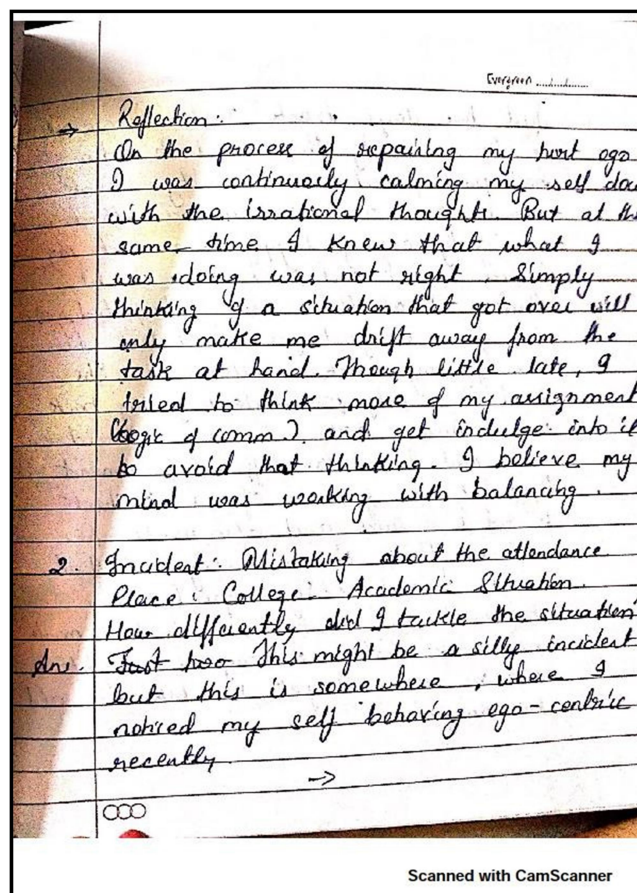 Evergreen ...../...../.....
→ Reflection:
On the process of repairing my hurt ego
I was continuously calming my self dow
with the irrational thoughts. But at the
same time I knew that what I
was doing was not right. Simply
thinking of a situation that got over will
only make me drift away from the
task at hand. Though little late, I
tried to think more of my assignment
(Logic of comm.) and get indulge into it
to avoid that thinking. I believe my
mind was working with balancing.
2. Incident: Mistaking about the attendance
Place: College: Academic Situation.
How differently did I tackle the situation
Ans. This might be a silly incident
but this is somewhere, where I
noticed my self behaving ego-centric
recently.
→
Scanned with CamScanner